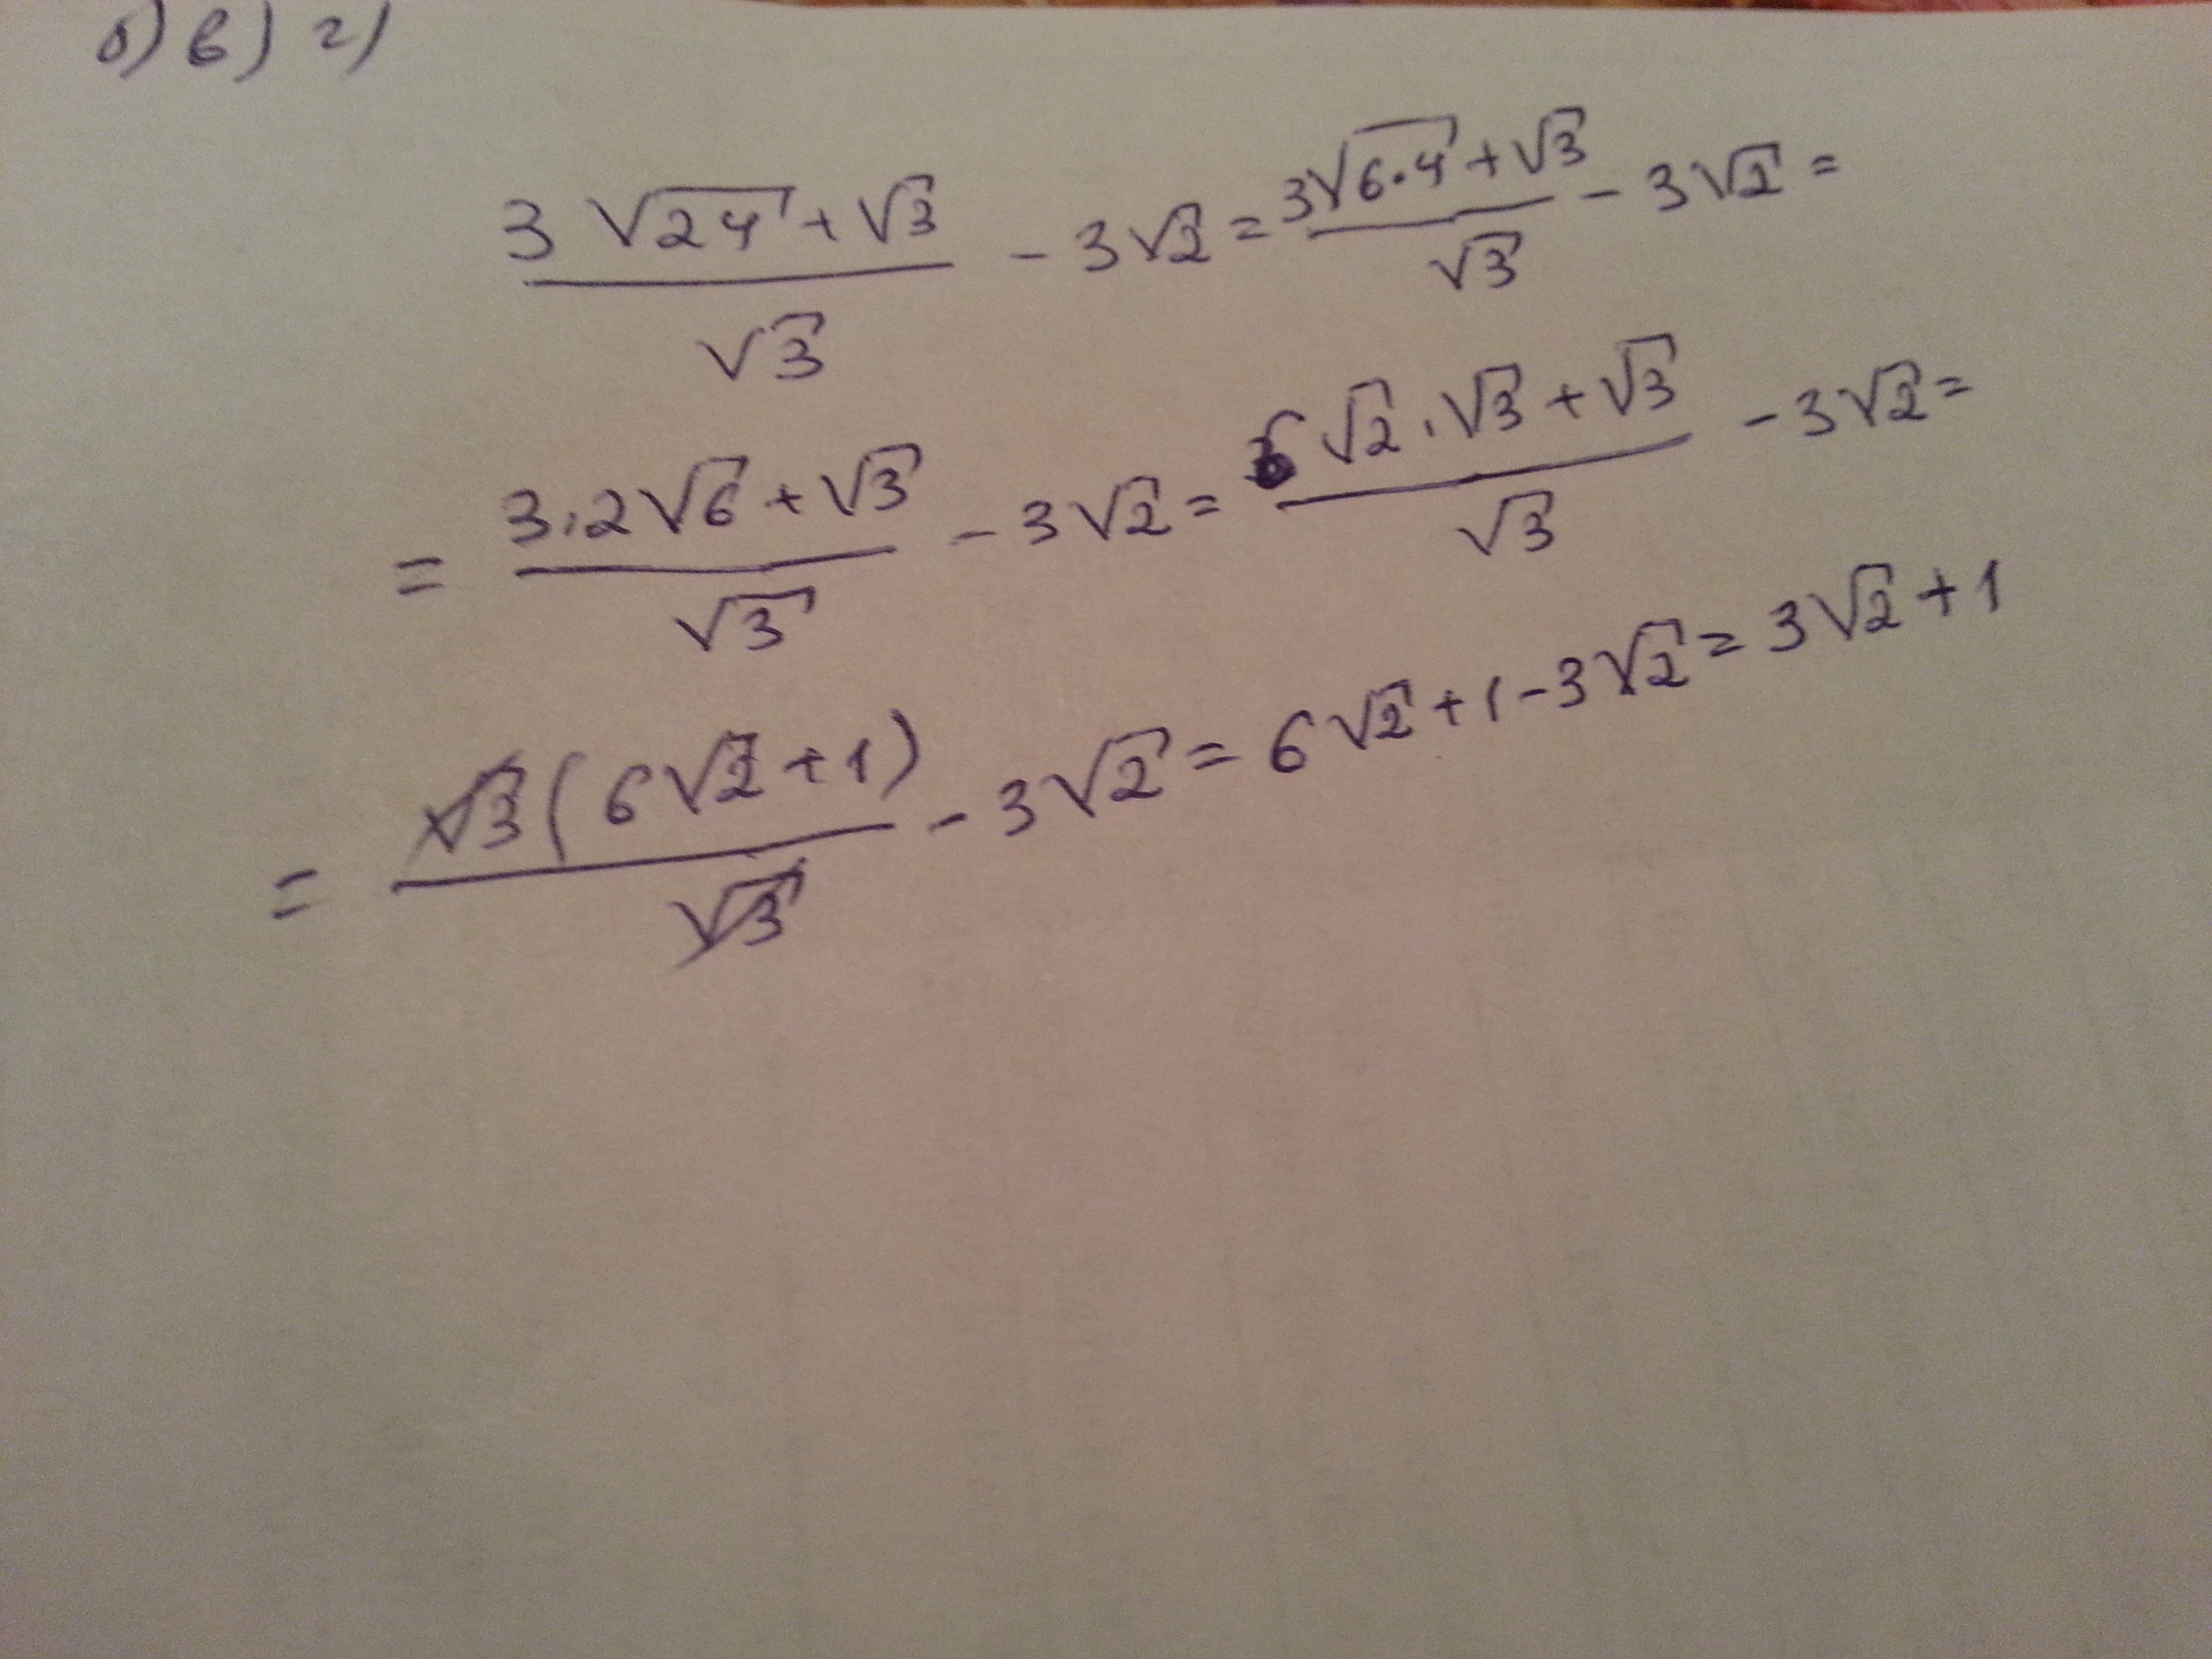 б) в) г)
(3√24 + √3)/√3 - 3√2 = (3√(6·4) + √3)/√3 - 3√2 =
= (3·2√6 + √3)/√3 - 3√2 = (6√2·√3 + √3)/√3 - 3√2 =
= √3(6√2 + 1)/√3 - 3√2 = 6√2 + 1 - 3√2 = 3√2 + 1